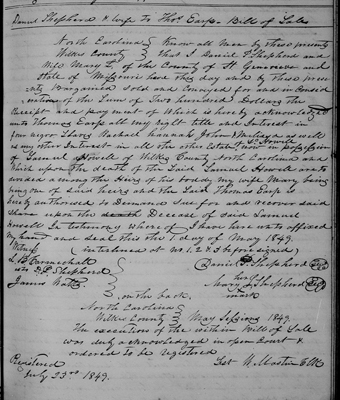 Daniel Shepherd & wife to Thos. Earp. Bill of Sale
North Carolina } Know all Men by these presents
Wilkes County } that I Daniel P. Shepherd and
Wife Mary L. of the County of St Genevieve and
State of Missouri have this day and by these pres-
ents Bargained Sold and Conveyed for and in Consid-
eration of the Sum of Two hundred Dollars the
Receipt and payment of Which is hereby acknowledged
unto Thomas Earp all my right title and Interest in
four negro Slaves Rachael Hannah John & as well
as my other Interest in all the other Estate now in possession
of Samuel Howell of Wilkes County North Carolina and
Which upon the death of the Said Samuel Howell are to
be divided among the Heirs of my Wife Mary being
being one of said heirs and the Said Thomas Earp is
hereby authorised to Demand Sue for and recover said
Share upon the death Decease of said Samuel
Howell In testimony whereof I have hereunto affixed
My hand and seal this the 1 day of May 1849.
Witness (interlined at No. 1, 2 & 3 before signed)
L. B. Carmichall } Daniel P. Shepherd
as to D. P. Shepherd } her
James Watts } Mary L. Shepherd
on the back. mark
North Carolina }
Wilkes County } May Sessions 1849.
The execution of the within Bill of Sale
was duly acknowledged in open Court &
ordered to be registered
Registered Test W. Mastin Clk
July 23rd 1849.